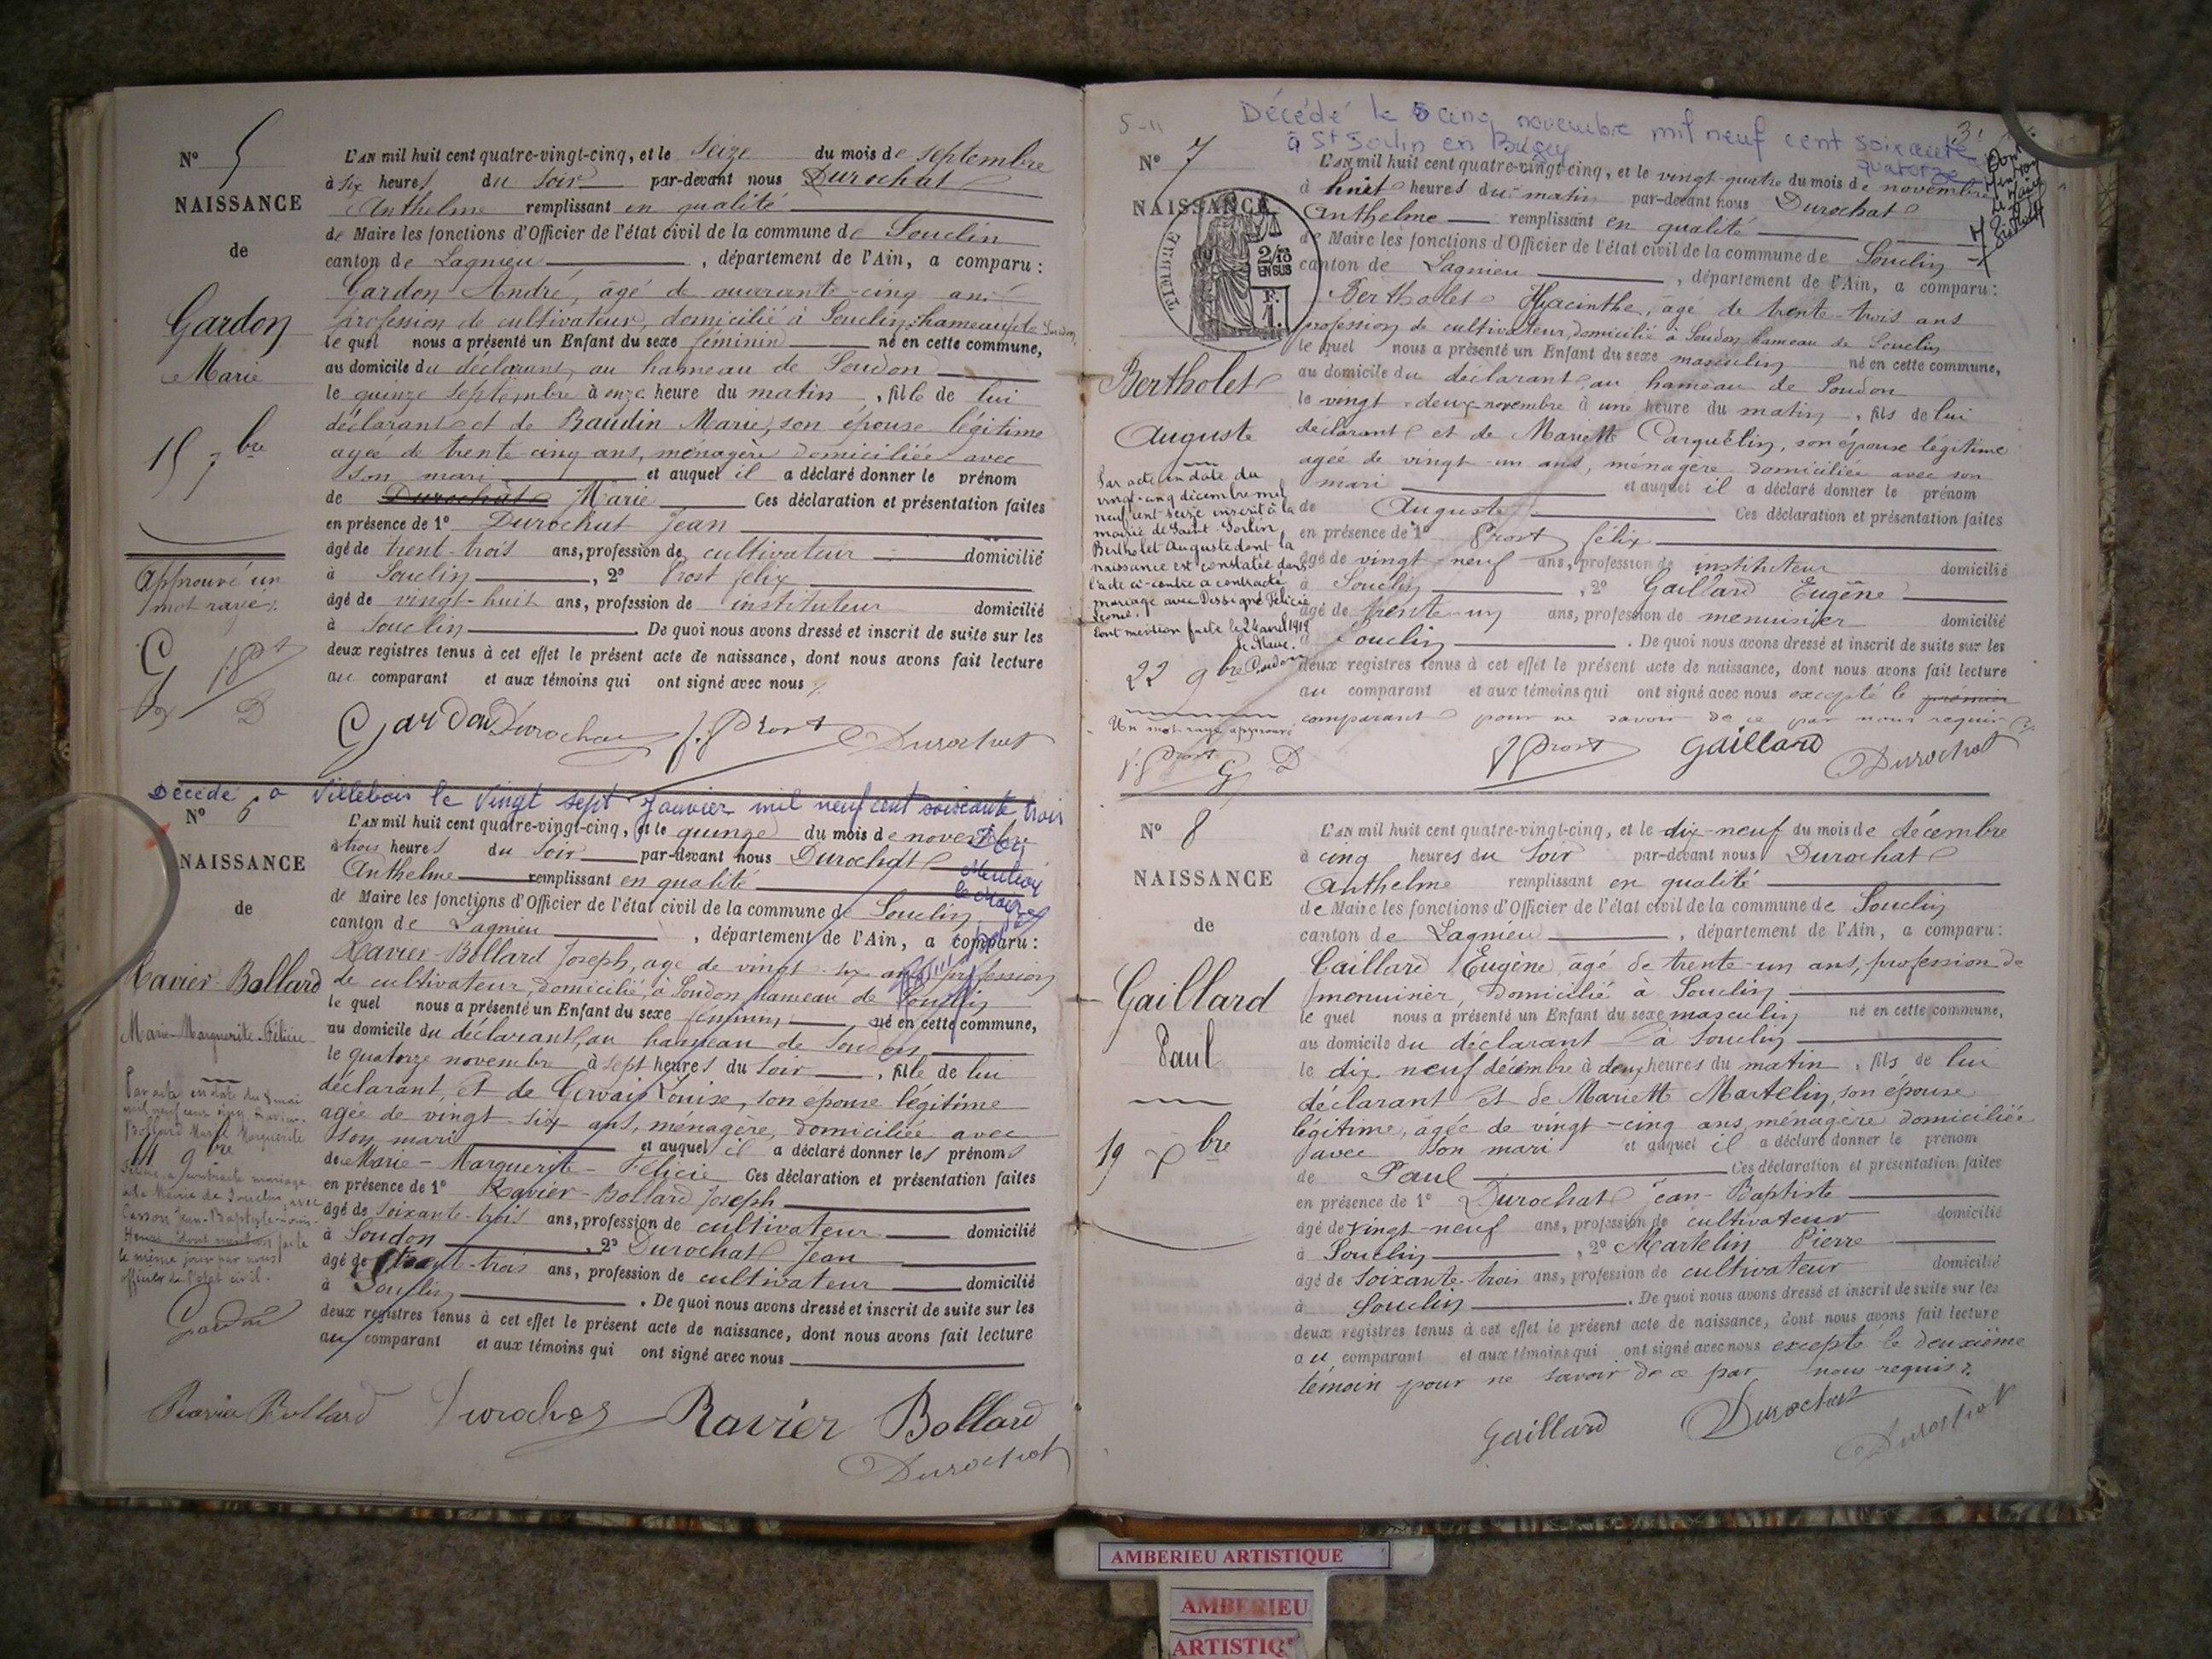 N° 5
NAISSANCE
de
Gardon
Marie
15 7bre
Approuvé un
mot rayé
L'AN mil huit cent quatre-vingt-cinq, et le seize du mois de septembre
à six heures du soir par-devant nous Durochat
Anthelme remplissant en qualité
de Maire les fonctions d'Officier de l'état civil de la commune de Souclin
canton de Lagnieu, département de l'Ain, a comparu :
Gardon André, âgé de quarante-cinq ans
profession de cultivateur, domicilié à Souclin, hameau de Soudon
le quel nous a présenté un Enfant du sexe féminin né en cette commune,
au domicile du déclarant, au hameau de Soudon
le quinze septembre à onze heure du matin, fille de lui
déclarant et de Baudin Marie, son épouse légitime
agée de trente-cinq ans, ménagère domiciliée avec
son mari et auquel il a déclaré donner le prénom
de Durochat Marie Ces déclaration et présentation faites
en présence de 1° Durochat Jean
âgé de trent-trois ans, profession de cultivateur domicilié
à Souclin, 2° Prost félix
âgé de vingt-huit ans, profession de instituteur domicilié
à Souclin. De quoi nous avons dressé et inscrit de suite sur les
deux registres tenus à cet effet le présent acte de naissance, dont nous avons fait lecture
au comparant et aux témoins qui ont signé avec nous
Gardon Durochat f. Prost Durochat
Décédé à Villebois le vingt sept Janvier mil neuf cent soixante trois
N° 6
NAISSANCE
de
Ravier-Bollard
Marie-Marguerite-Félicie
Par acte en date du 8 mai
mil neuf cent cinq Ravier-
Bollard Marie Marguerite
14 9bre
Félicie a contracté mariage
à la Mairie de Souclin avec
Jean-Baptiste-Louis-
dont mention faite
le même jour par nous
officier de l'état civil.
Gardon
L'AN mil huit cent quatre-vingt-cinq, et le quinze du mois de novembre
à trois heures du soir par-devant nous Durochat
Anthelme remplissant en qualité
Mention
le Maire
de Maire les fonctions d'Officier de l'état civil de la commune de Souclin
canton de Lagnieu, département de l'Ain, a comparu :
Ravier-Bollard Joseph, age de vingt-six ans profession
de cultivateur, domicilié, à Soudon hameau de Souclin
le quel nous a présenté un Enfant du sexe féminin, né en cette commune,
au domicile du déclarant, au hameau de Soudon
le quatorze novembre à sept heures du soir, fille de lui
déclarant, et de Gervais Louise, son épouse légitime
agée de vingt-six ans, ménagère, domiciliée avec
son mari et auquel il a déclaré donner les prénoms
de Marie-Marguerite-Félicie Ces déclaration et présentation faites
en présence de 1° Ravier-Bollard Joseph
âgé de soixante-trois ans, profession de cultivateur domicilié
à Soudon, 2° Durochat Jean
âgé de trente-trois ans, profession de cultivateur domicilié
à Souclin. De quoi nous avons dressé et inscrit de suite sur les
deux registres tenus à cet effet le présent acte de naissance, dont nous avons fait lecture
au comparant et aux témoins qui ont signé avec nous
Ravier Bollard Durochat Ravier Bollard
Durochat
5-11
Décédé le 5 cinq novembre mil neuf cent soixante
quatorze
à St Sorlin en Bugey
N° 7
NAISSANCE
TIMBRE
2/10
EN SUS
F.
1.
Bertholet
Auguste
Par acte en date du
vingt-cinq décembre mil
neuf cent seize inscrit à la
mairie de Saint-Sorlin
Bertholet Auguste dont la
naissance est constatée dans
l'acte ci-contre a contracté
mariage avec Dessigné Félicie
Léonie.
Dont mention faite le 24 avril 1919
le Maire.
22 9bre
Un mot rayé approuvé
f. Prost G D
L'AN mil huit cent quatre-vingt-cinq, et le vingt-quatre du mois de novembre
à huit heures du matin par-devant nous Durochat
Anthelme remplissant en qualité
de Maire les fonctions d'Officier de l'état civil de la commune de Souclin
canton de Lagnieu, département de l'Ain, a comparu :
Bertholet Hyacinthe, agé de trente-trois ans
profession de cultivateur, domicilié à Soudon hameau de Souclin
le quel nous a présenté un Enfant du sexe masculin né en cette commune,
au domicile du déclarant, au hameau de Soudon
le vingt-deux novembre à une heure du matin, fils de lui
déclarant et de Mariette Carquelin, son épouse légitime
agée de vingt-un ans, ménagère domiciliée avec son
mari et auquel il a déclaré donner le prénom
de Auguste Ces déclaration et présentation faites
en présence de 1° Prost félix
âgé de vingt-neuf ans, profession de instituteur domicilié
à Souclin, 2° Gaillard Eugène
âgé de trente-un ans, profession de menuisier domicilié
à Souclin. De quoi nous avons dressé et inscrit de suite sur les
deux registres tenus à cet effet le présent acte de naissance, dont nous avons fait lecture
au comparant et aux témoins qui ont signé avec nous excepté le prémier
comparant pour ne savoir de ce par nous requis
f Prost Gaillard Durochat
N° 8
NAISSANCE
de
Gaillard
Paul
19 Xbre
L'AN mil huit cent quatre-vingt-cinq, et le dix-neuf du mois de décembre
à cinq heures du soir par-devant nous Durochat
Anthelme remplissant en qualité
de Maire les fonctions d'Officier de l'état civil de la commune de Souclin
canton de Lagnieu, département de l'Ain, a comparu :
Gaillard Eugène, âgé de trente-un ans, profession de
menuisier, domicilié à Souclin
le quel nous a présenté un Enfant du sexe masculin né en cette commune,
au domicile du déclarant à Souclin
le dix-neuf décembre à deux heures du matin, fils de lui
déclarant et de Mariette Martelin, son épouse
légitime, agée de vingt-cinq ans, ménagère domiciliée
avec son mari et auquel il a déclaré donner le prénom
de Paul Ces déclaration et présentation faites
en présence de 1° Durochat Jean-Baptiste
âgé de vingt-neuf ans, profession de cultivateur domicilié
à Souclin, 2° Martelin Pierre
âgé de soixante-trois ans, profession de cultivateur domicilié
à Souclin. De quoi nous avons dressé et inscrit de suite sur les
deux registres tenus à cet effet le présent acte de naissance, dont nous avons fait lecture
au comparant et aux témoins qui ont signé avec nous excepté le deuxième
témoin pour ne savoir de ce par nous requis.
Gaillard Durochat Durochat
AMBERIEU ARTISTIQUE
AMBERIEU
ARTISTIQ